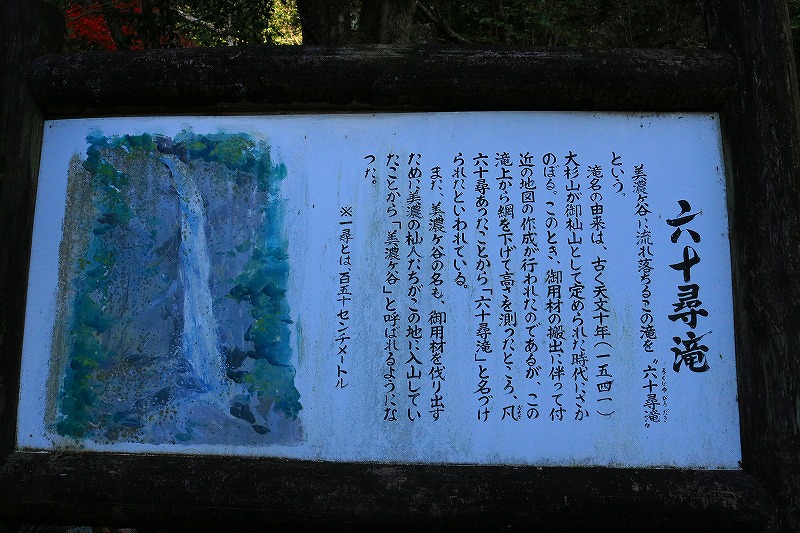 六十尋滝
美濃ヶ谷に流れ落ちるこの滝を〝六十尋滝〟
ろくじゅうひろだき
という。
滝名の由来は、古く天文十年(一五四一)
大杉山が御杣山として定められた時代にさか
のぼる。このとき、御用材の搬出に伴って付
近の地図の作成が行われたのであるが、この
滝上から綱を下げて高さを測ったところ、凡
およそ
六十尋あったことから「六十尋滝」と名づけ
られたといわれている。
また、美濃ヶ谷の名も、御用材を伐り出す
ために美濃の杣人たちがこの地に入山してい
たことから「美濃ヶ谷」と呼ばれるようにな
った。
※一尋とは、百五十センチメートル